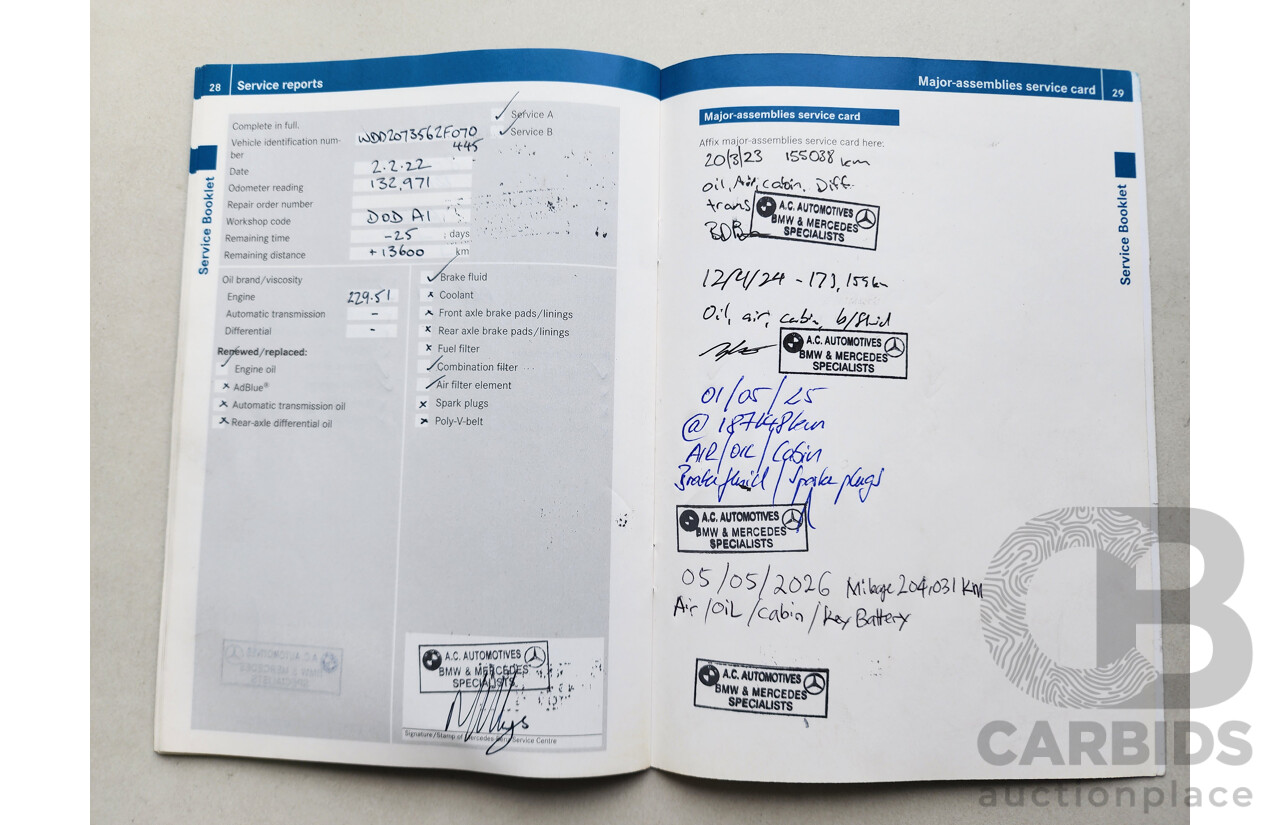 28 Service reports
Complete in full.
Vehicle identification num-
ber
WDD2073562F070
445
Date 2.2.22
Odometer reading 132,971
Repair order number
Workshop code DOD A1
Remaining time -25 days
Remaining distance +13600 km
Service A
Service B
Service Booklet
Oil brand/viscosity
Engine 229.51
Automatic transmission -
Differential -
Renewed/replaced:
Engine oil
AdBlue®
Automatic transmission oil
Rear-axle differential oil
Brake fluid
Coolant
Front axle brake pads/linings
Rear axle brake pads/linings
Fuel filter
Combination filter
Air filter element
Spark plugs
Poly-V-belt
A.C. AUTOMOTIVES
BMW & MERCEDES
SPECIALISTS
Signature/Stamp of Mercedes-Benz Service Centre
Major-assemblies service card 29
Major-assemblies service card
Affix major-assemblies service card here:
20/3/23 155038 km
oil, Air, cabin, Diff.
trans
A.C. AUTOMOTIVES
BMW & MERCEDES
SPECIALISTS
12/4/24 - 173,159km
Oil, air, cabin, b/fluid
A.C. AUTOMOTIVES
BMW & MERCEDES
SPECIALISTS
01/05/25
@ 187448km
AIR/OIL/Cabin
Brake fluid / Spark plugs
A.C. AUTOMOTIVES
BMW & MERCEDES
SPECIALISTS
05/05/2026 Milage 204,031 KM
Air/OIL/cabin/Key Battery
A.C. AUTOMOTIVES
BMW & MERCEDES
SPECIALISTS
Service Booklet
CARBIDS
auctionplace